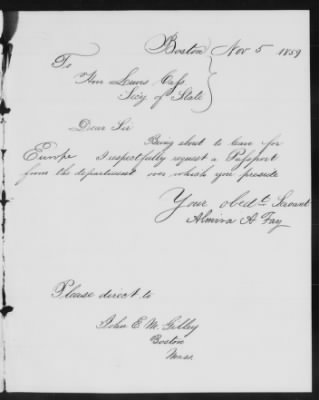 Boston Nov 5 1859
To
Hon Lewis Cass
Sec'y of State
Dear Sir
Being about to leave for
Europe I respectfully request a Passport
from the department over which you preside
Your obedt. Servant
Almira A Fay
Please direct to
John E. M. Gilley
Boston
Mass